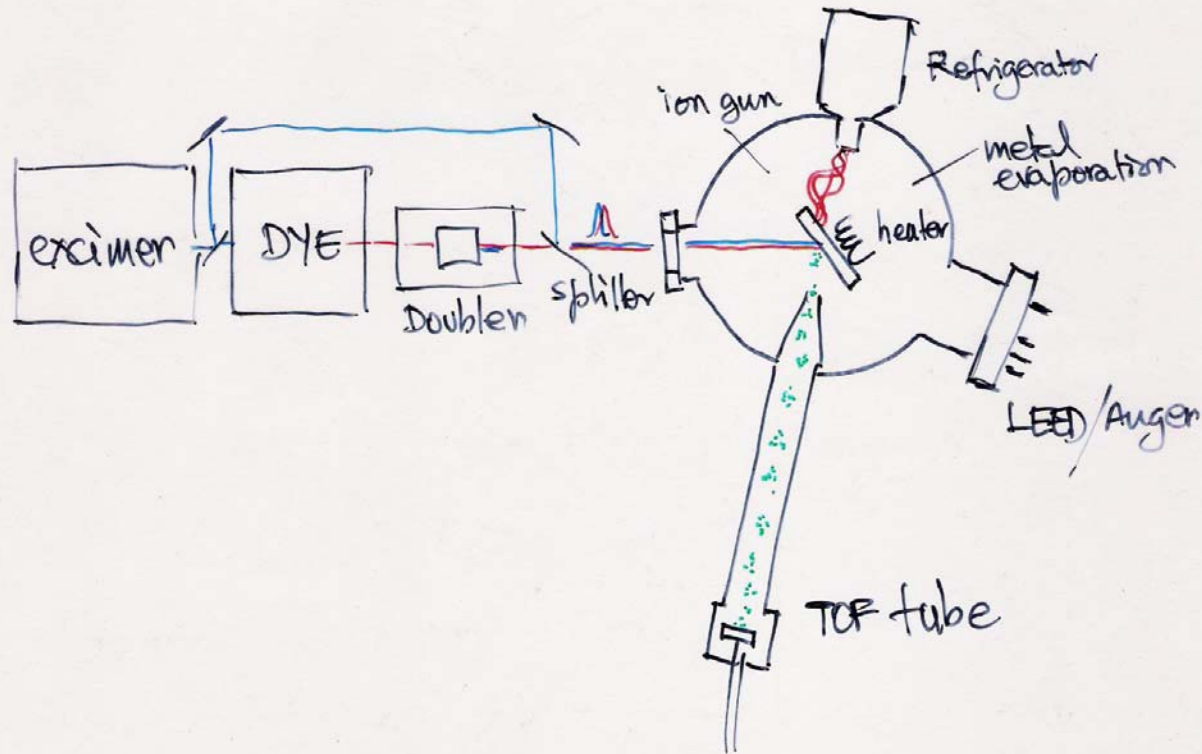 excimer
DYE
Doubler
splitter
ion gun
Refrigerator
metal
evaporation
heater
LEED/Auger
TOF tube